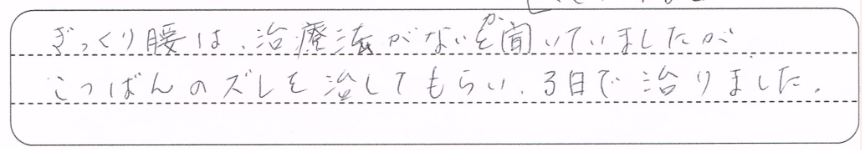 ぎっくり腰は、治療法がないと聞いていましたが
こつばんのズレを治してもらい、3日で治りました。